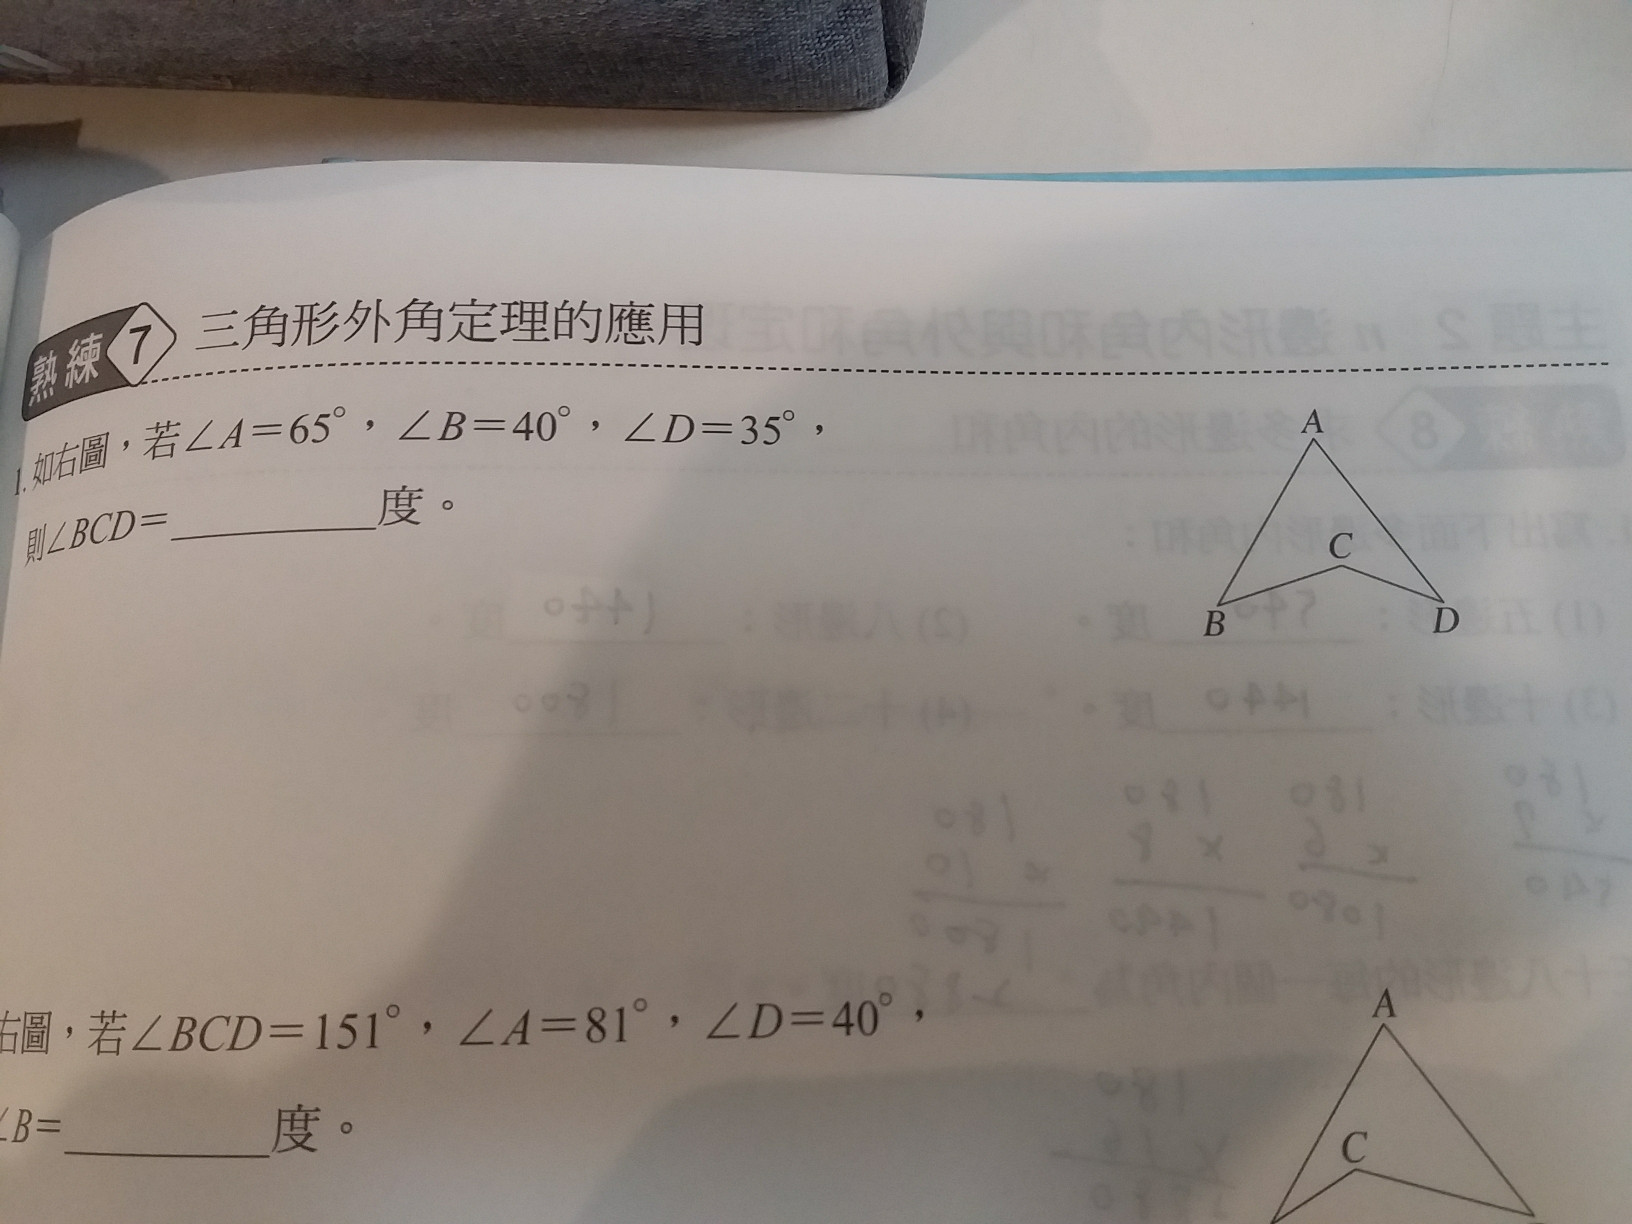 熟練 7 三角形外角定理的應用
1. 如右圖，若∠A＝65°，∠B＝40°，∠D＝35°，
則∠BCD＝__________度。
A
C
B
D
右圖，若∠BCD＝151°，∠A＝81°，∠D＝40°，
∠B＝__________度。
A
C